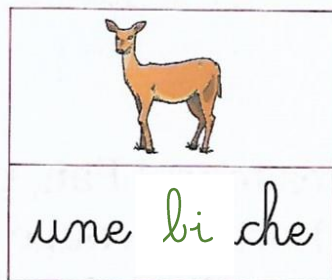 une bi che